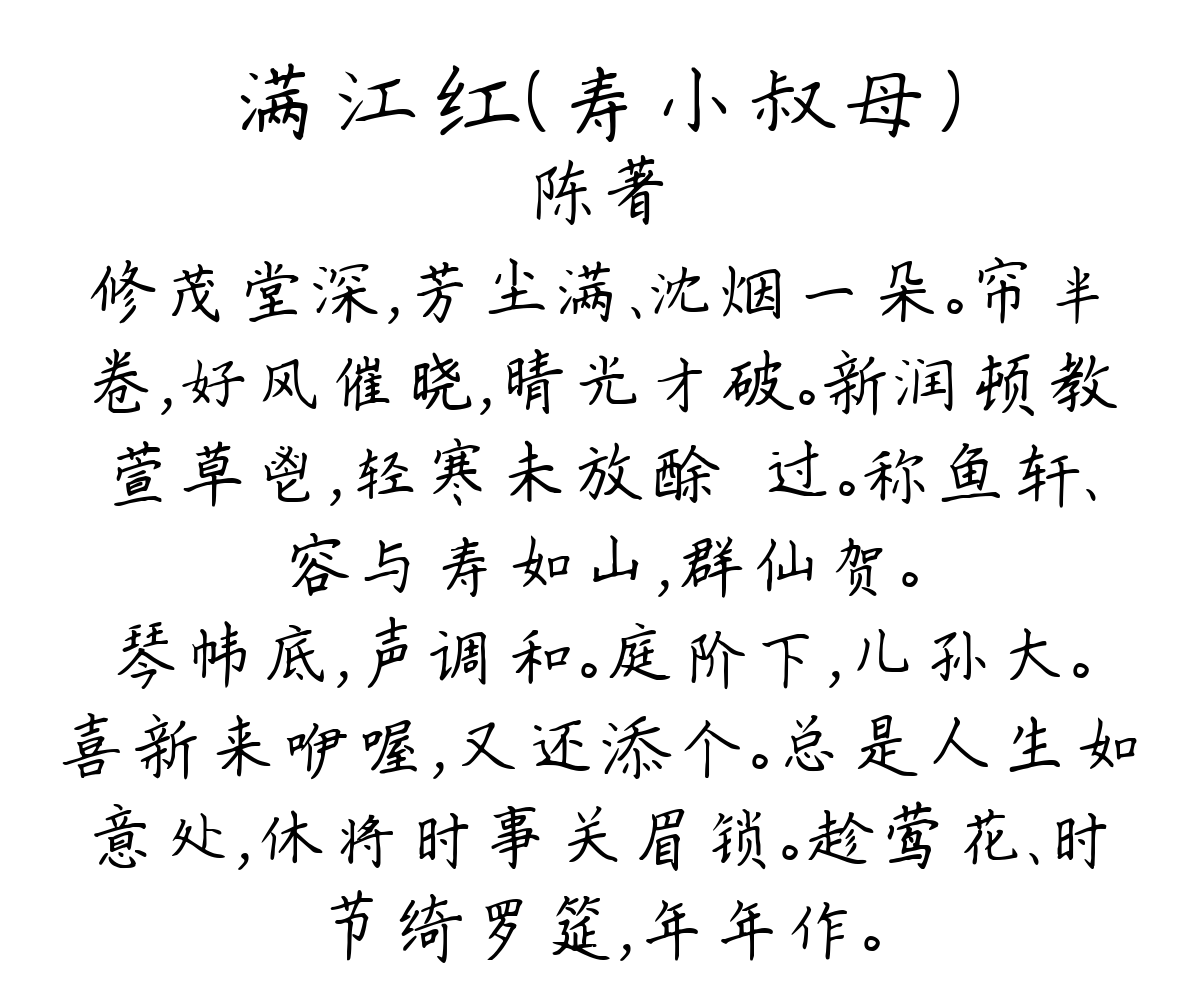 满江红(寿小叔母)
陈著
修茂堂深,芳尘满、沈烟一朵。帘半
卷,好风催晓,晴光才破。新润顿教
萱草鬯,轻寒未放酴 过。称鱼轩、
容与寿如山,群仙贺。
琴帏底,声调和。庭阶下,儿孙大。
喜新来咿喔,又还添个。总是人生如
意处,休将时事关眉锁。趁莺花、时
节绮罗筵,年年作。